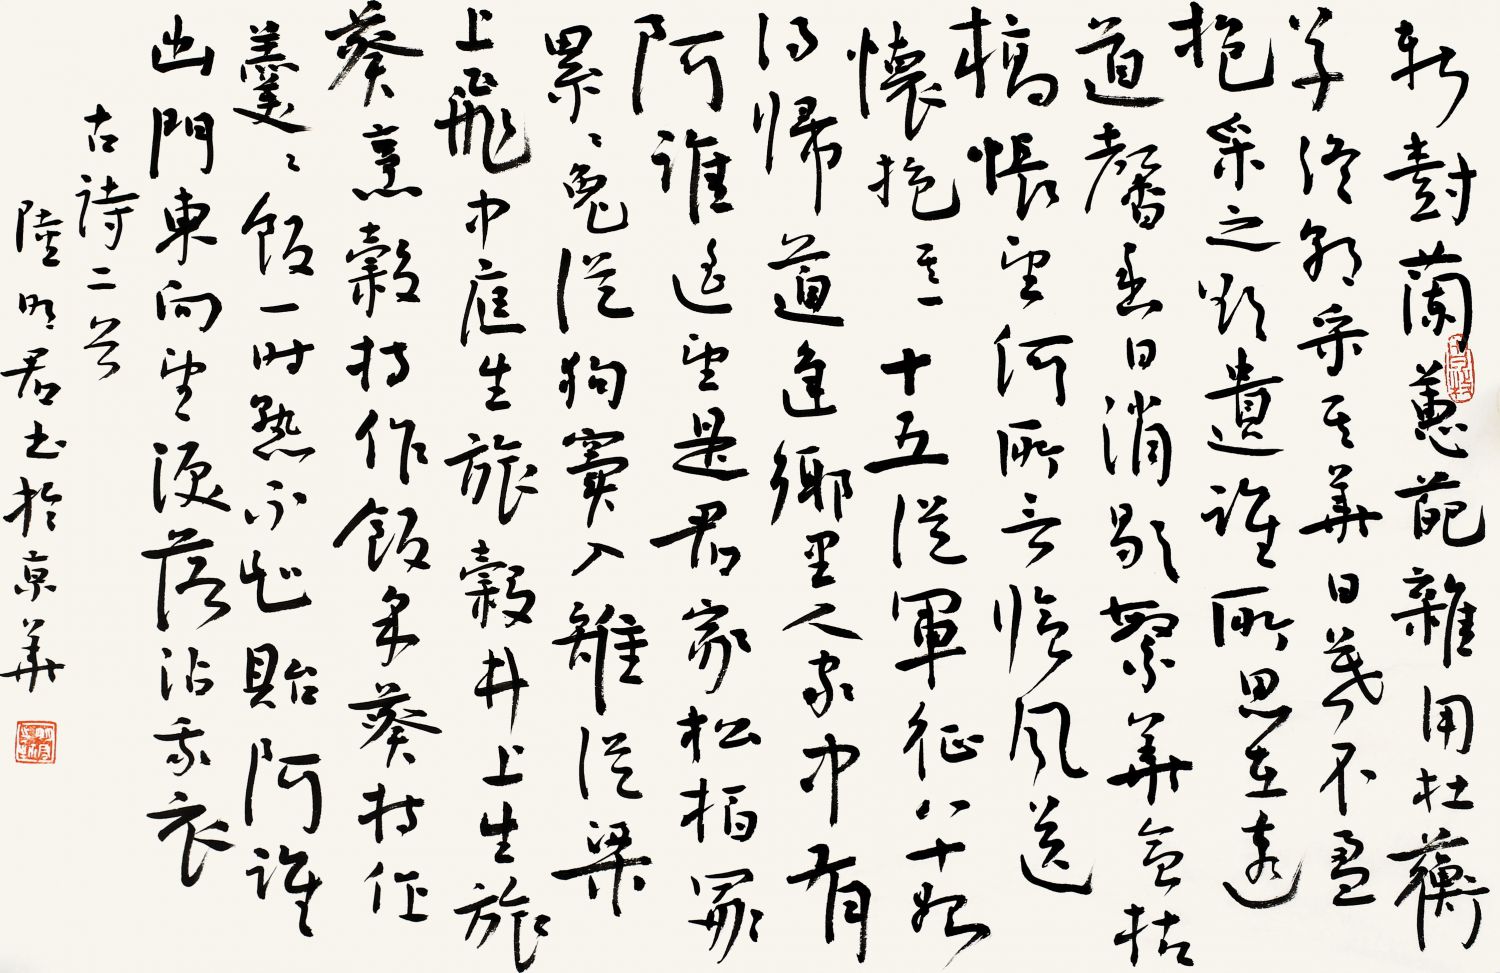 新樹蘭蕙葩雜用杜蘅
草終朝采其華日暮不盈
抱采之欲遺誰所思在遠
道馨香日消歇繁華會枯
槁悵望何所言臨風送
懷抱其一十五從軍征八十始
得歸道逢鄉里人家中有
阿誰遙望是君家松柏冢
累〻兔從狗竇入雉從梁
上飛中庭生旅穀井上生旅
葵烹穀持作飯采葵持作
羹〻飯一時熟不知貽阿誰
出門東向望淚落沾我衣
古詩二首
陸明君書於京華